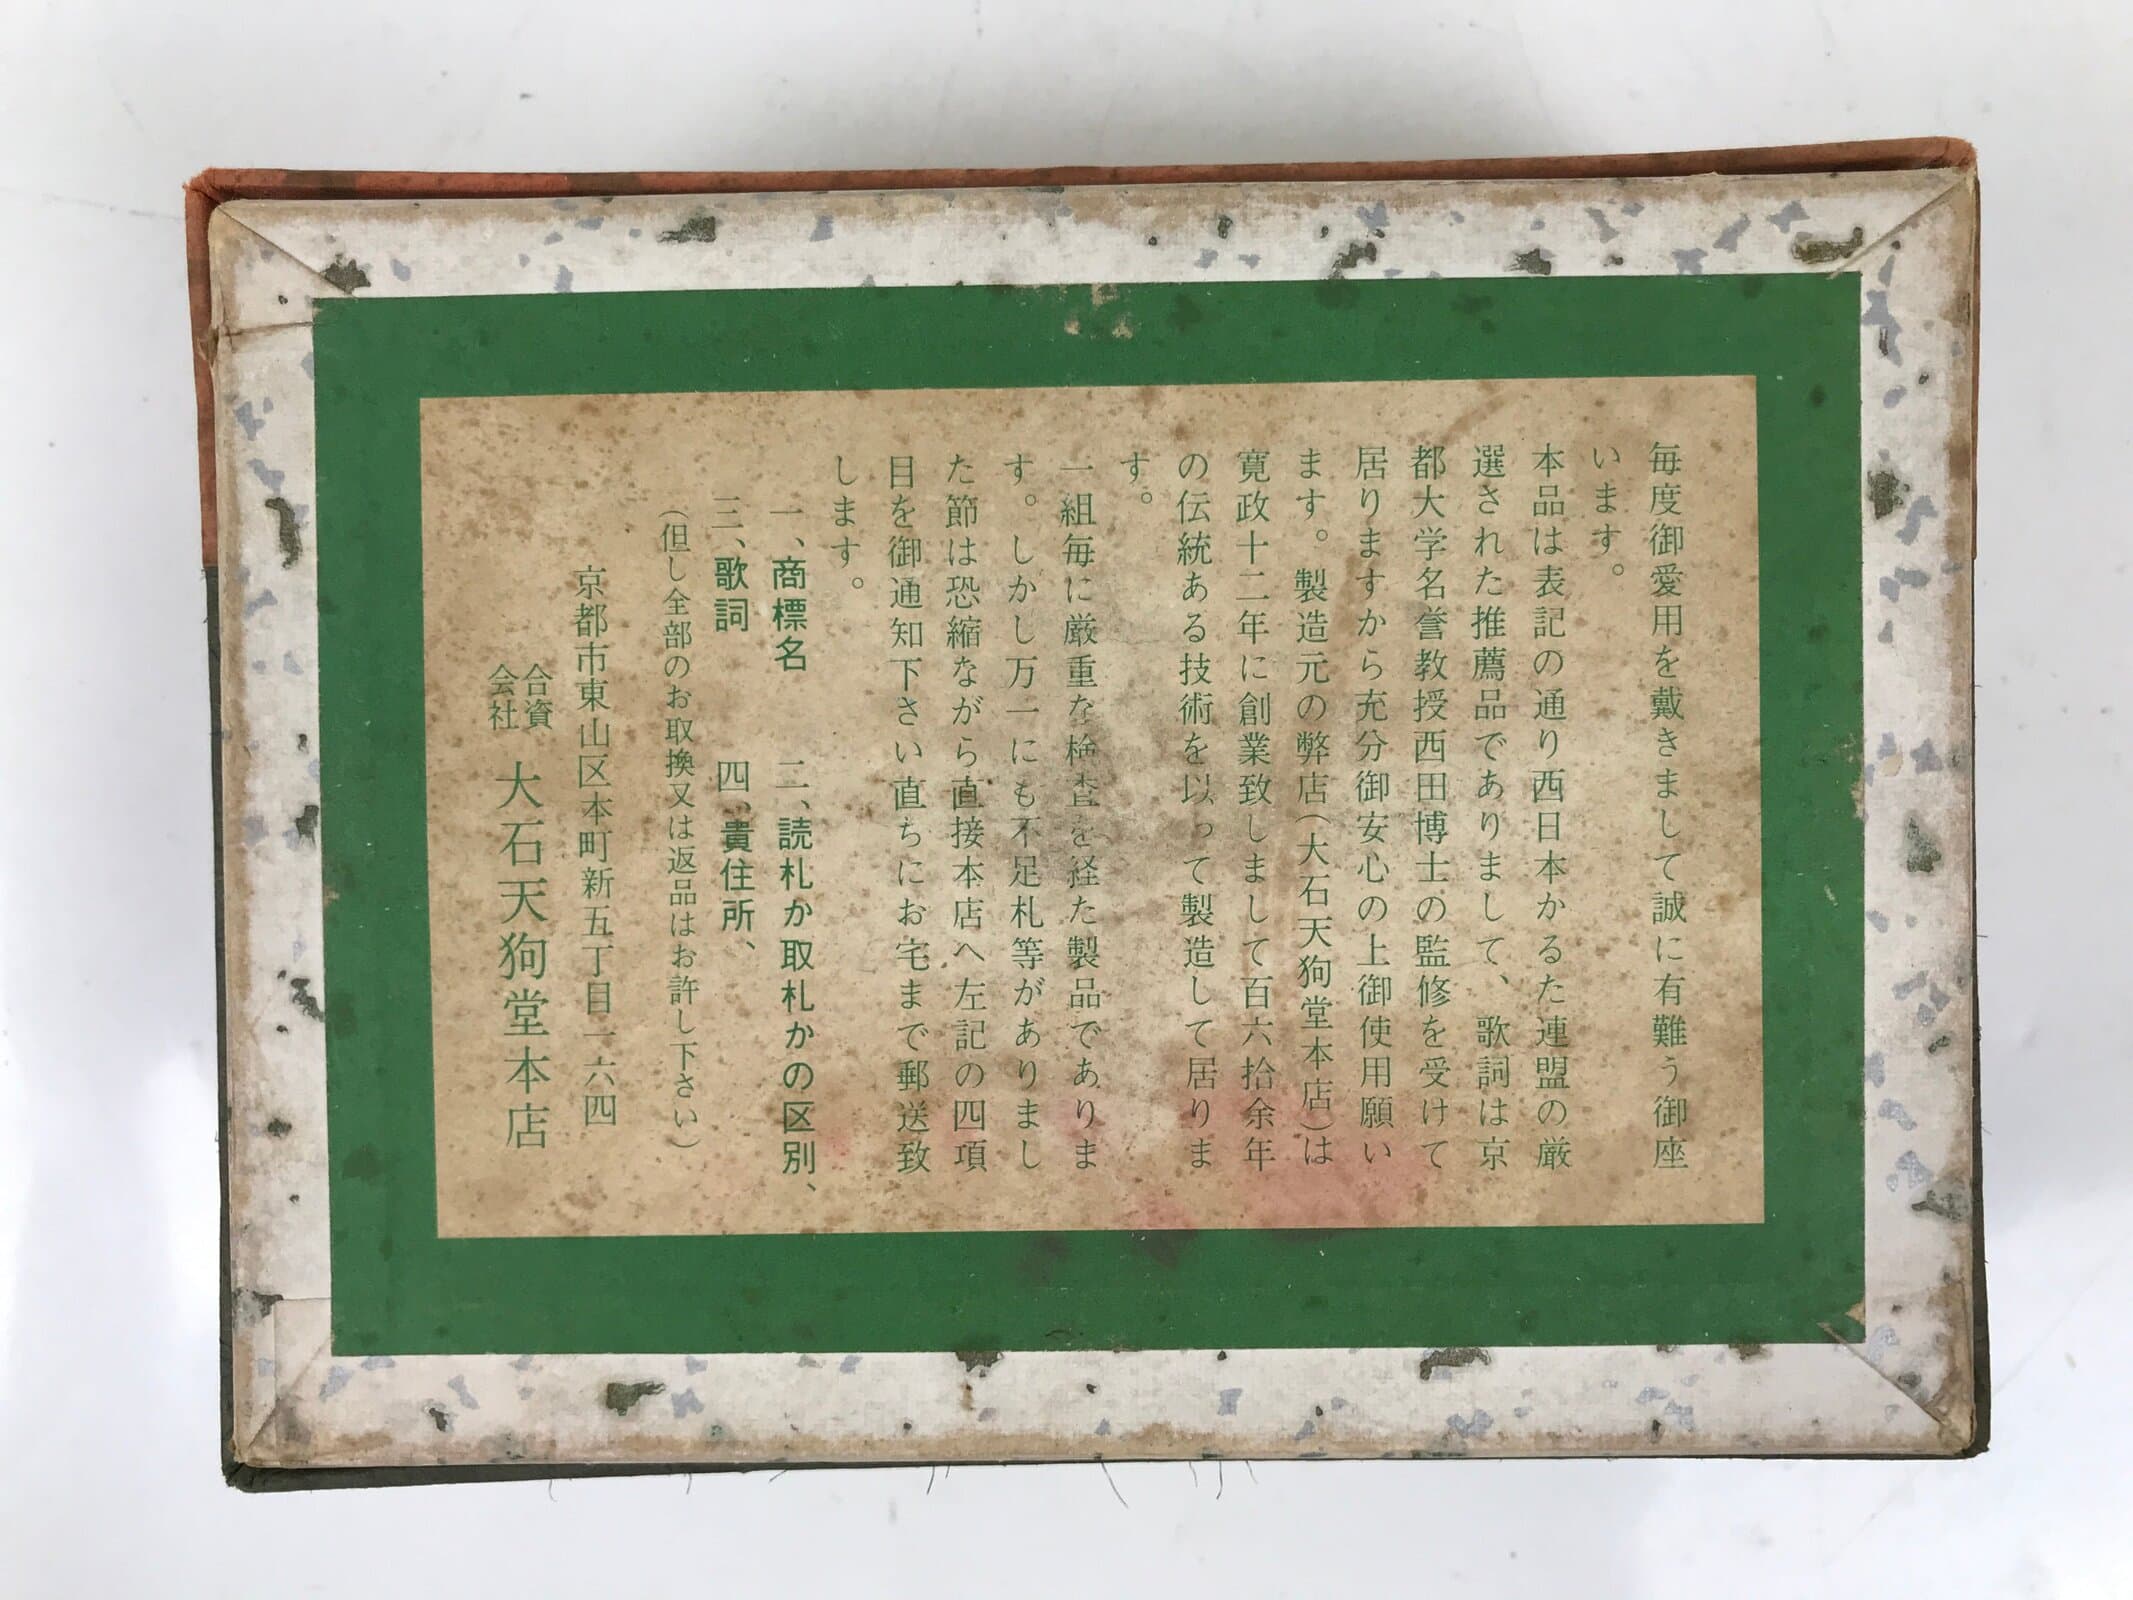 毎度御愛用を戴きまして誠に有難う御座
います。
本品は表記の通り西日本かるた連盟の厳
選された推薦品でありまして、歌詞は京
都大学名誉教授西田博士の監修を受けて
居りますから充分御安心の上御使用願い
ます。製造元の弊店(大石天狗堂本店)は
寛政十二年に創業致しまして百六拾余年
の伝統ある技術を以って製造して居りま
す。
一組毎に厳重な検査を経た製品でありま
す。しかし万一にも不足札等がありまし
た節は恐縮ながら直接本店へ左記の四項
目を御通知下さい直ちにお宅まで郵送致
します。
一、商標名 二、読札か取札かの区別、
三、歌詞 四、貴住所、
(但し全部のお取換又は返品はお許し下さい)
京都市東山区本町新五丁目一六四
合資会社 大石天狗堂本店